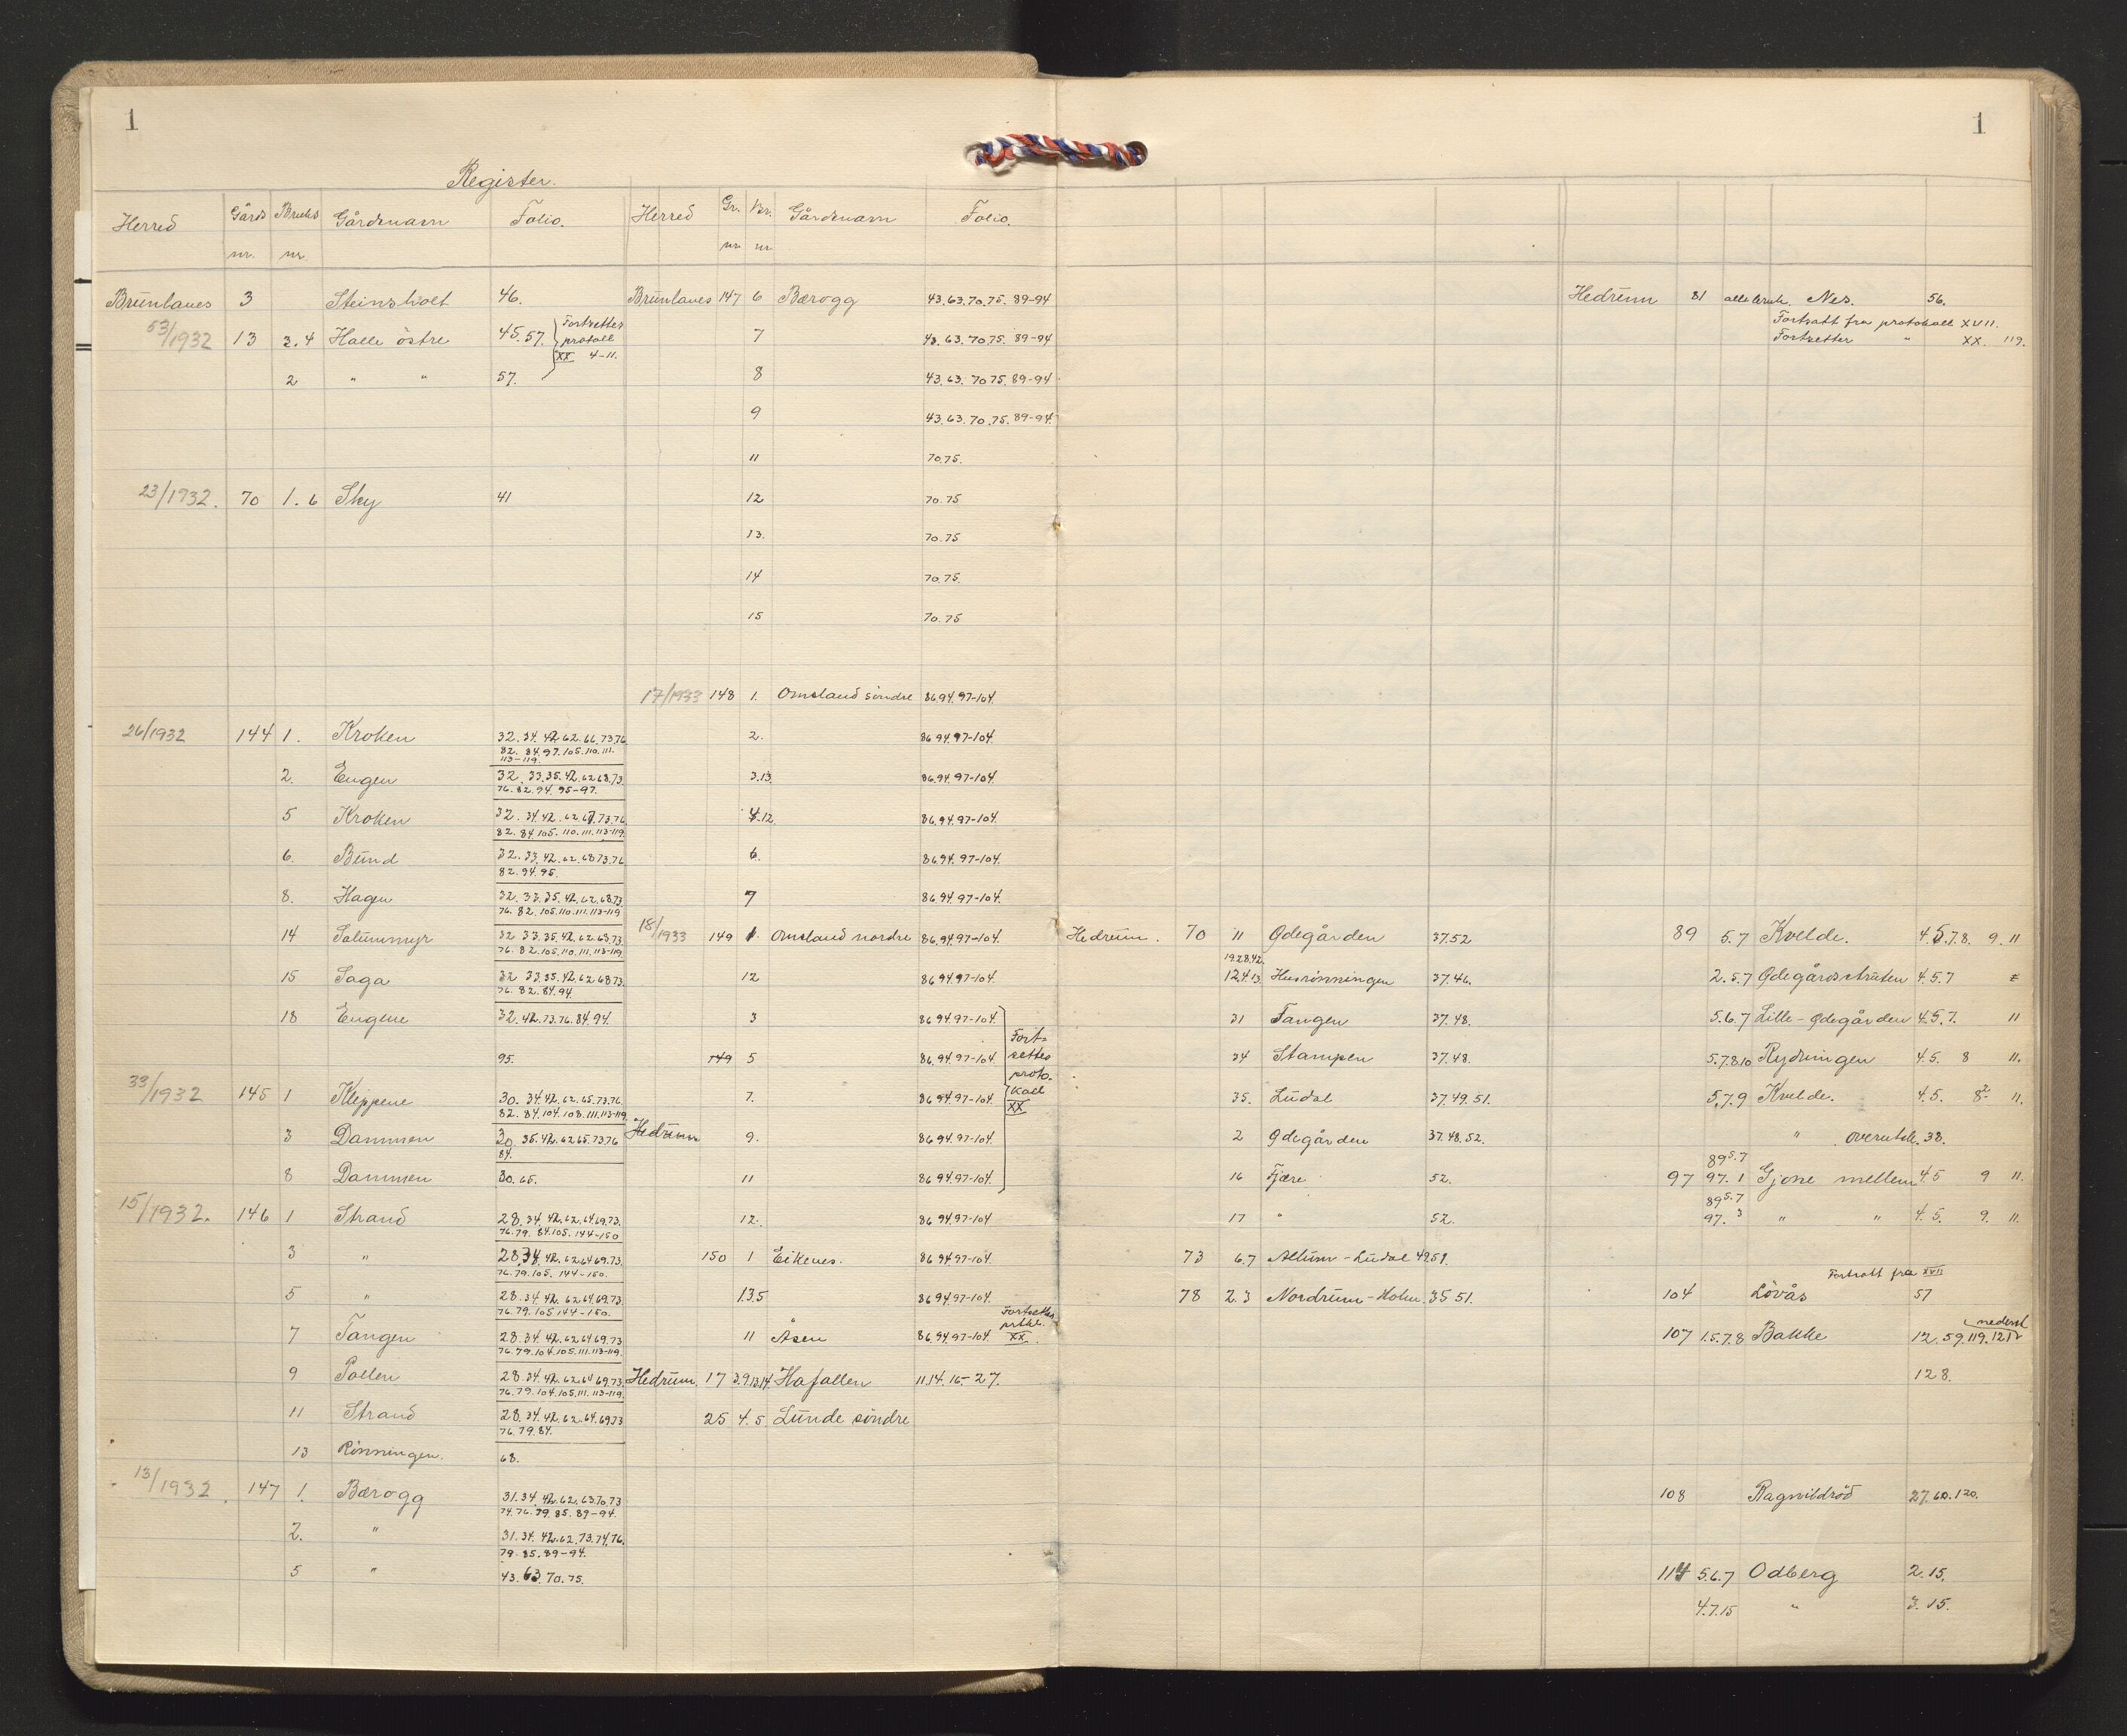 1
Register.
Herred Gårds nr. Bruks nr. Gårdsnavn Folio.
Brunlanes 3 Steinsholt 46.
53/1932 13 2.4 Halle östre 45.57. Fortsetter protoll XX 4-11.
2 " " 57.
23/1932. 70 1.6 Sky 41
26/1932 144 1. Kroken 32.34.42.62.66.73.76
82.84.97.105.110.111.
113-119.
2. Engen 32.33.35.42.62.68.73.
76.82.94.95-97.
5 Kroken 32.34.42.62.67.73.76
82.84.105.110.111.113-119.
6. Bund 32.33.42.62.68.73.76
82.94.95.
8. Hagen 32.33.35.42.62.68.73.
76.82.105.110.111.113-119
14 Solummyr 32 33.35.42.62.63.73.
76.82.105.110.111.113-119
15 Saga 32 33.35.42.62.68.73.
76.82.84.94.
18 Engene 32.42.73.76.84.94.
95.
33/1932 145 1 Kleppene 30.34.42.62.65.73.76.
82.84.104.108.111.113-119.
3 Dammen 30.35.42.62.65.73.76
84.
8 Dammen 30.65.
15/1932. 146 1 Strand 28.34.42.62.64.69.73.
76.79.84.105.144-150
3 " 28.34.42.62.64.69.73.
76.79.105.144-150.
5 " 28.34.42.62.64.69.73
76.79.105.144-150.
7 Tangen 28.34.42.62.64.69.73
76.79.104.105.111.113-119.
9 Pollen 28.34.42.62.64.69.73.
76.79.104.105.111.113-119.
11 Strand 28.34.42.62.64.69.73
76.79.84.
13 Rönningen. 68.
13/1932. 147 1. Bærogg 31.34.42.62.63.70.73
74.76.79.85.89-94.
2. " 31.34.42.62.73.74.76.
79.85.89-94.
5 " 43.63.70.75.
Herred Gr. nr Br. nr Gårdsnavn Folio.
Brunlanes 147 6 Bærogg 43.63.70.75. 89-94
7 43.63.70.75. 89-94
8 43.63.70.75. 89-94.
9 43.63.70.75. 89-94.
11 70.75.
12 70.75
13. 70.75
14 70.75.
15 70.75
17/1933 148 1. Omsland söndre 86.94.97-104.
2. 86.94.97-104.
3.13. 86.94.97-104.
4.12 86.94.97-104.
6. 86.94.97-104.
7 86.94.97-104.
18/1933 149 1. Omsland nordre 86.94.97-104.
12 86.94.97-104.
3 86.94.97-104.
149 5 86.94.97-104
7. 86.94.97-104.
Fort-
settes
proto-
koll
XX
Hedrum 9. 86.94.97-104.
11 86.94.97-104.
12. 86.94.97-104
150 1 Eikenes. 86.94.97-104.
13.5 86.94.97-104.
11 Åsen 86.94.97-104. Fortsettes prtkl. XX.
Hedrum. 17 3.9.13.14. Hafallen 11.14.16-27.
25 4.5. Lunde söndre
1
Hedrum. 70 11 Ödegården 37.52
19.28.42.
12.4.13. Husrönningen 37.46.
31 Tangen 37.48.
34 Stampen 37.48.
35. Ludal 37.49.51.
2 Ödegården 37.48.52.
16 Fjære 52.
17 " 52.
73 6.7 Allum-Ludal 49.51.
78 2.3 Nordrum-Holm. 35 51.
Hedrum 81 alle bruk. Nes. 56.
Fortsatt fra protokoll XVII.
Fortsetter " XX. 119.
89 5.7 Kvelde. 4.5.7.8. 9. 11
2.5.7 Ödegårdsstruten 4.5.7
5.6.7 Lille-Ödegården 4.5.7. 11
5.7.8.10 Rydningen 4.5. 8 11.
5.7.9 Kvelde. 4.5. 8² 11.
" overutsk. 38.
89 5.7
97 97.1 Gjone mellem 4.5 9 11.
89 5.7
97. 3 " " 4.5. 9. 11.
Fortsatt fra XVII
104 Lövås 57
107 1.5.7.8 Bakke 12.59.119.121 nederst
128.
108 Ragnvildröd 27.60.120.
114 5.6.7 Odberg 2.15.
4.7.15 " 3.15.